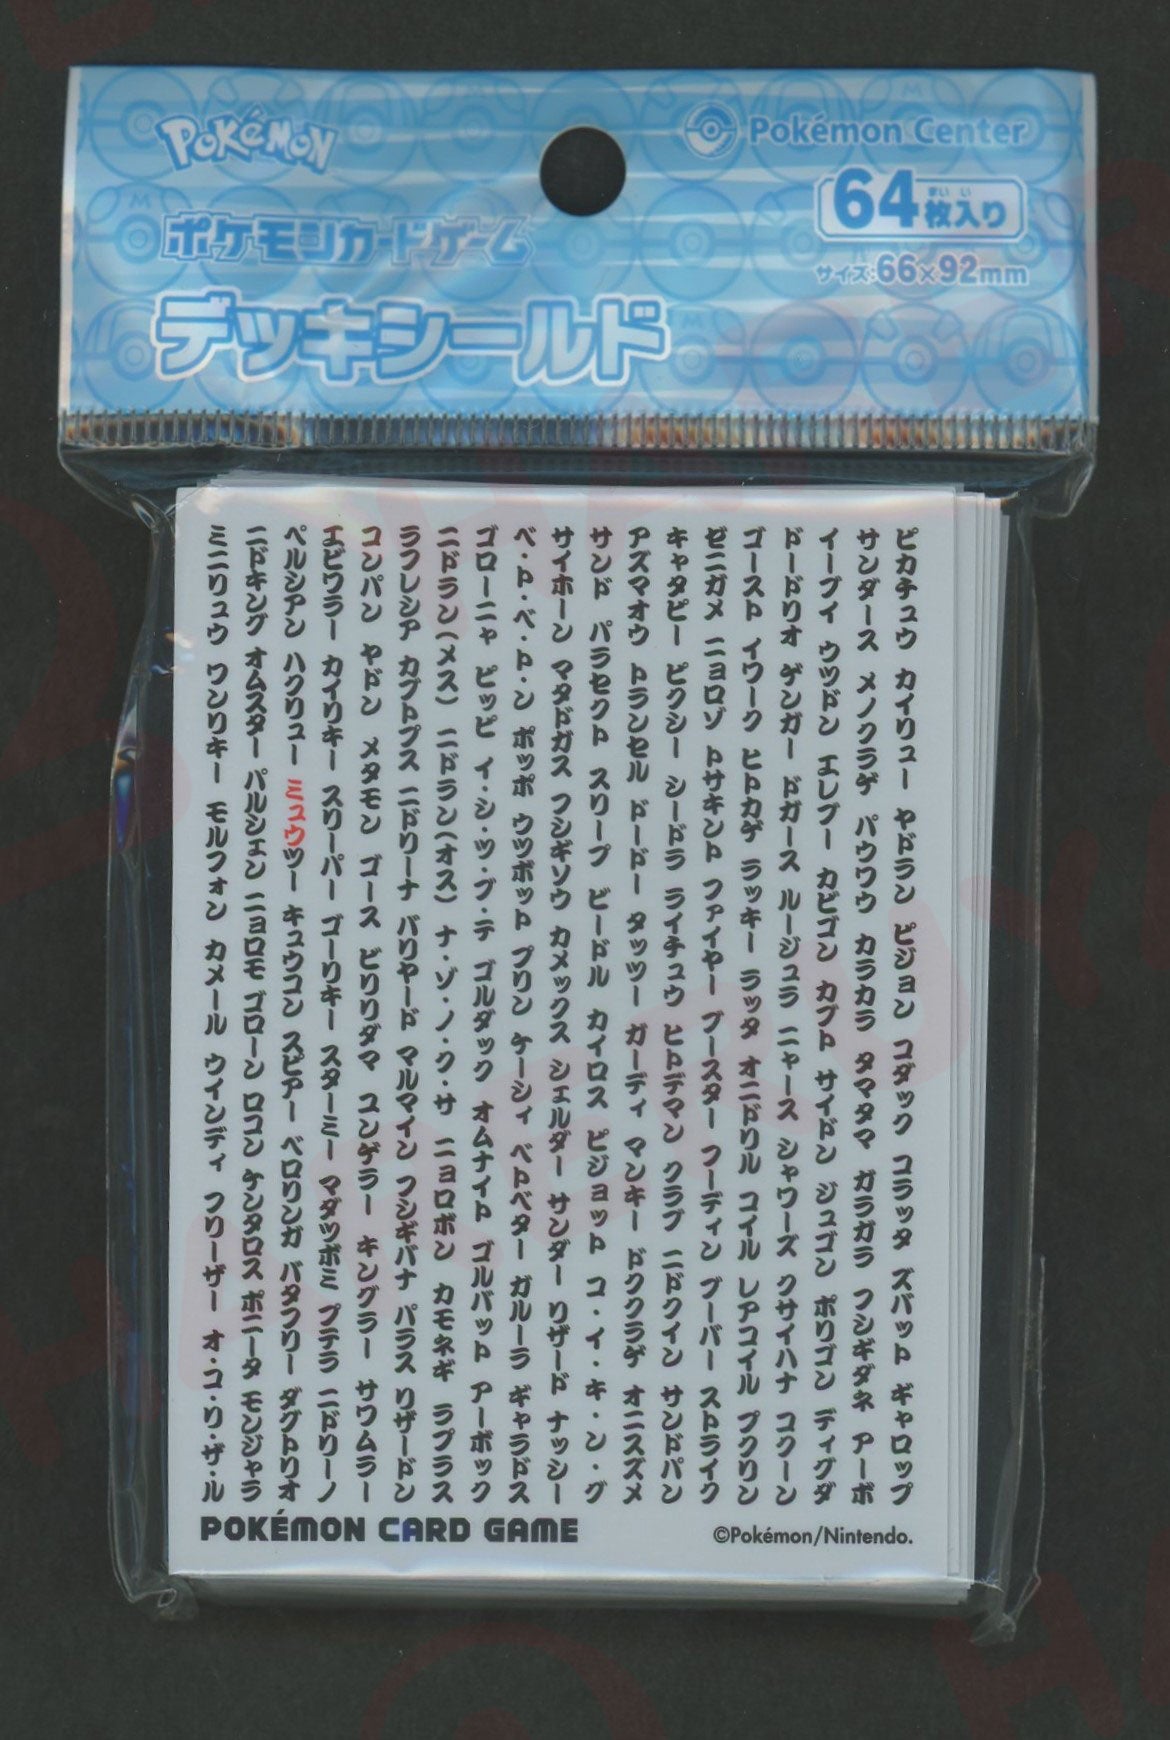 Pokémon
Pokémon Center
ポケモンカードゲーム
64枚入り
まい い
サイズ:66×92mm
デッキシールド
ピカチュウ カイリュー ヤドラン ピジョン コダック コラッタ ズバット ギャロップ
サンダース メノクラゲ パウワウ カラカラ タマタマ ガラガラ フシギダネ アーボ
イーブイ ウツドン エレブー カビゴン カブト サイドン ジュゴン ポリゴン ディグダ
ドードリオ ゲンガー ドガース ルージュラ ニャース シャワーズ クサイハナ コクーン
ゴースト イワーク ヒトカゲ ラッキー ラッタ オニドリル コイル レアコイル プクリン
ゼニガメ ニョロゾ トサキント ファイヤー ブースター フーディン ブーバー ストライク
キャタピー ピクシー シードラ ライチュウ ヒトデマン クラブ ニドクイン サンドパン
アズマオウ トランセル ドードー タッツー ガーディ マンキー ドククラゲ オニスズメ
サンド パラセクト スリープ ビードル カイロス ピジョット コ・イ・キ・ン・グ
サイホーン マタドガス フシギソウ カメックス シェルダー サンダー リザード ナッシー
ベ・ト・ベ・ト・ン ポッポ ウツボット プリン ケーシィ ベトベター ガルーラ ギャラドス
ゴローニャ ピッピ イ・シ・ツ・ブ・テ ゴルダック オムナイト ゴルバット アーボック
ニドラン(メス) ニドラン(オス) ナ・ゾ・ノ・ク・サ ニョロボン カモネギ ラプラス
ラフレシア カブトプス ニドリーナ バリヤード マルマイン フシギバナ パラス リザードン
コンパン ヤドン メタモン ゴース ビリリダマ ユンゲラー キングラー サワムラー
エビワラー カイリキー スリーパー ゴーリキー スターミー マダツボミ プテラ ニドリーノ
ペルシアン ハクリュー ミュウツー キュウコン スピアー ベロリンガ バタフリー ダグトリオ
ニドキング オムスター パルシェン ニョロモ ゴローン ロコン ケンタロス ポニータ モンジャラ
ミニリュウ ワンリキー モルフォン カメール ウインディ フリーザー オ・コ・リ・ザ・ル
POKÉMON CARD GAME
©Pokémon/Nintendo.